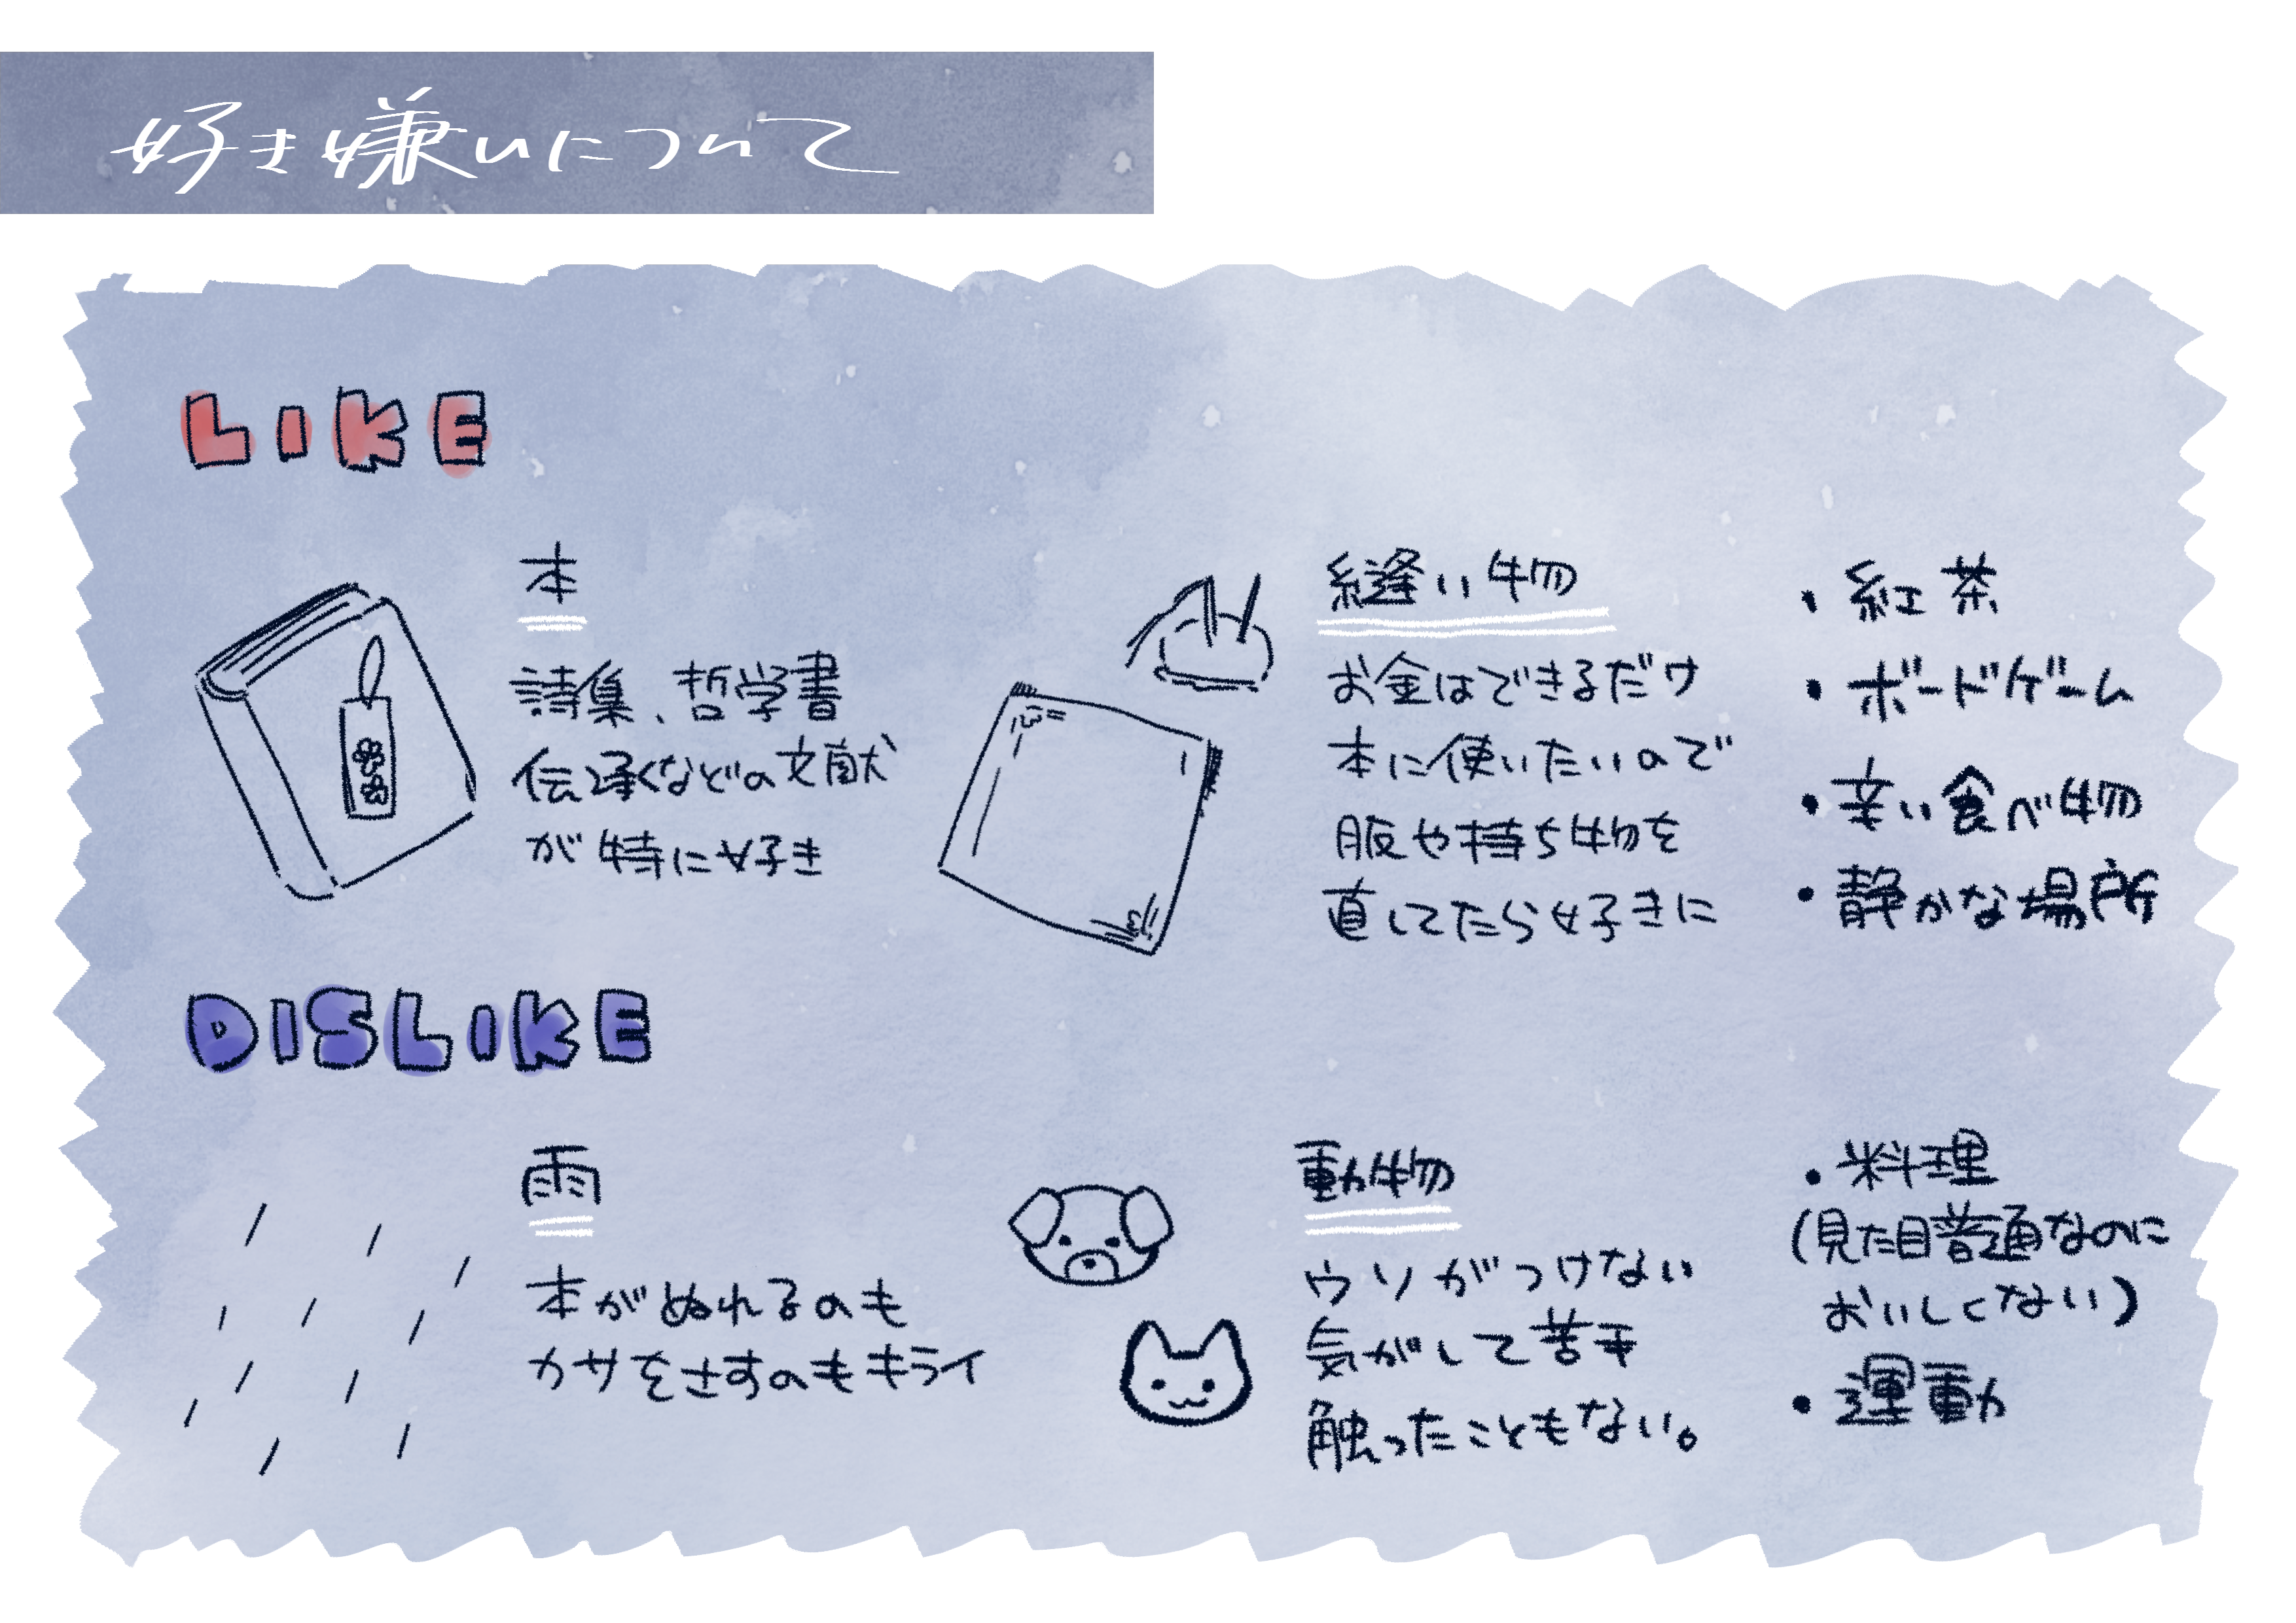 好き嫌いについて
LIKE
本
詩集、哲学書
伝承などの文献
が特に好き
縫い物
お金はできるだけ
本に使いたいので
服や持ち物を
直してたら好きに
・紅茶
・ボードゲーム
・辛い食べ物
・静かな場所
DISLIKE
雨
本がぬれるのも
カサをさすのもキライ
動物
ウソがつけない
気がして苦手
触ったこともない。
・料理
(見た目普通なのに
おいしくない)
・運動